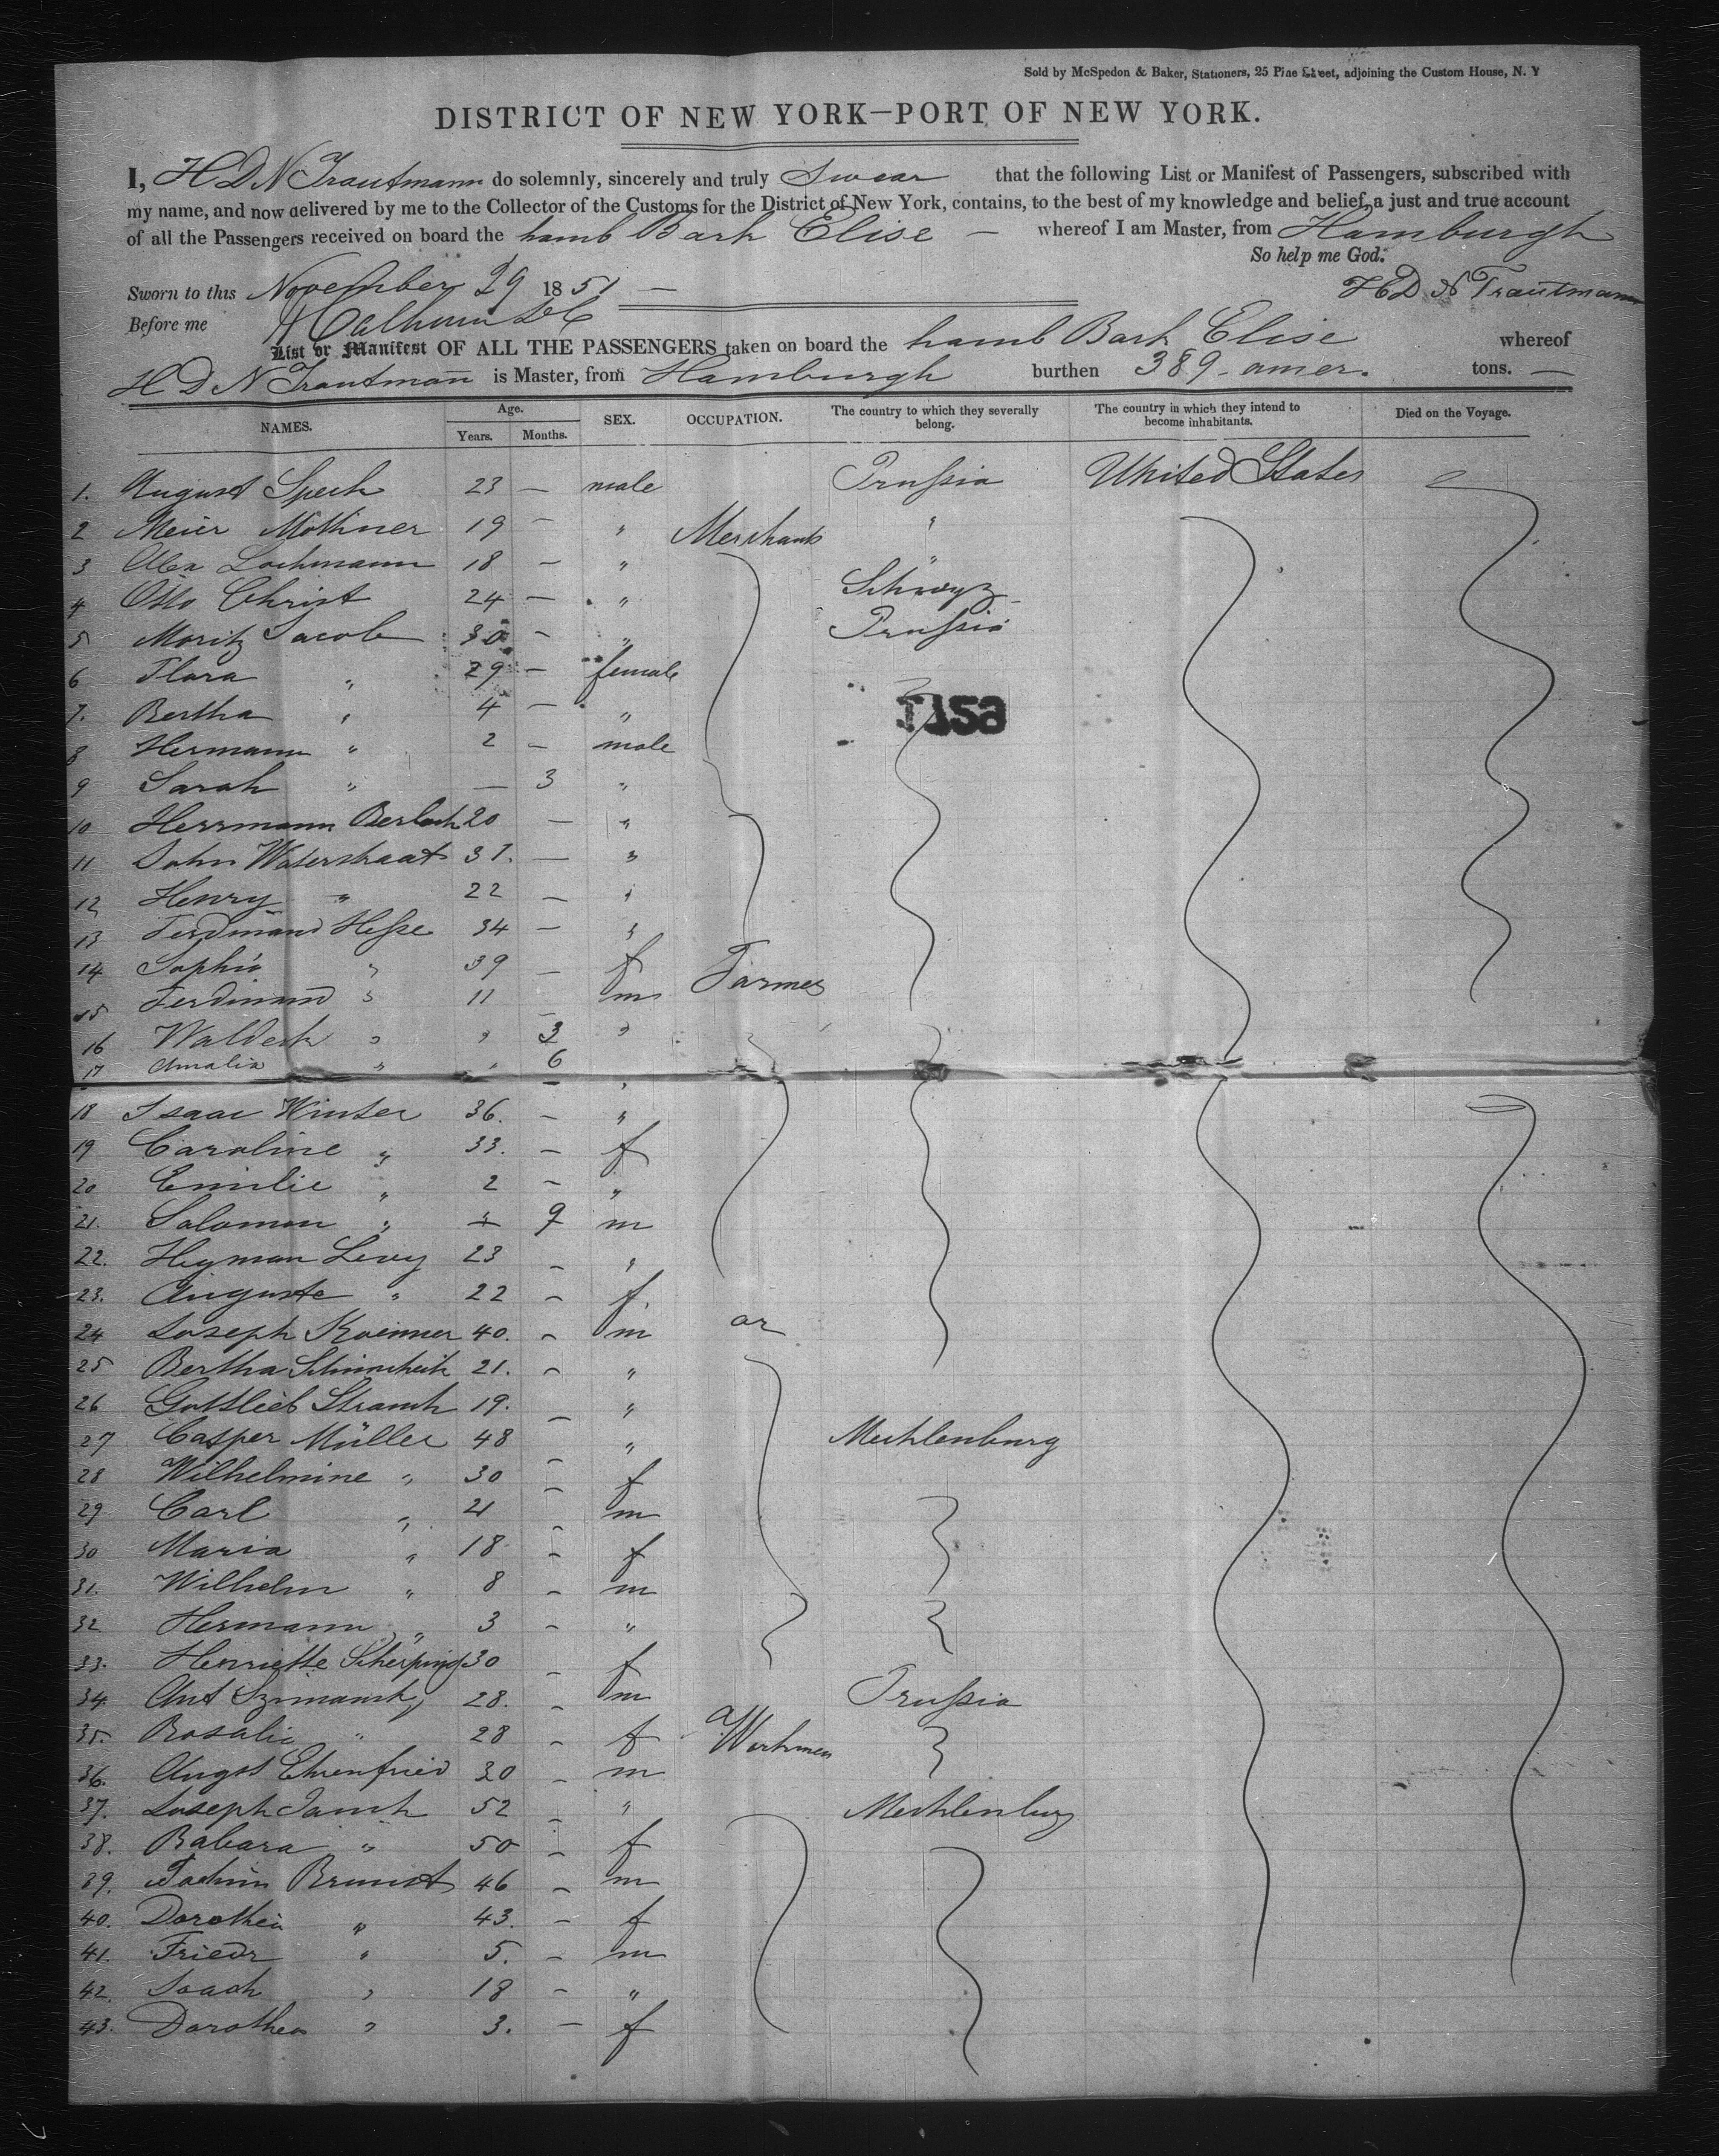 Sold by McSpedon & Baker, Stationers, 25 Pine Street, adjoining the Custom House, N. Y
DISTRICT OF NEW YORK—PORT OF NEW YORK.
I, H D N Trautmann do solemnly, sincerely and truly Swear that the following List or Manifest of Passengers, subscribed with
my name, and now delivered by me to the Collector of the Customs for the District of New York, contains, to the best of my knowledge and belief, a just and true account
of all the Passengers received on board the hamb Bark Elise — whereof I am Master, from Hamburgh
So help me God.
Sworn to this November 29 1851 — H D N Trautmann
Before me
List or Manifest OF ALL THE PASSENGERS taken on board the hamb Bark Elise whereof
H D N Trautmann is Master, from Hamburgh burthen 389 - amer. tons. —
NAMES. Age. Years. Months. SEX. OCCUPATION. The country to which they severally belong. The country in which they intend to become inhabitants. Died on the Voyage.
1. August Spech 23 — male Prussia United States
2 Meier 19 — " Merchants "
3 Alex Lochmann 18 — " "
4 Otto Christ 24 — " Schwyz
5 Moritz Jacob 30 — " Prussia
6 Flora " 29 — female
7. Bertha " 4 — "
8 Hermann " 2 — male
9 Sarah " — 3 "
10 Herrmann 20 — "
11 John Waterstraat 31. — "
12 Henry " 22 — "
13 Ferdinand Hesse 34 — "
14 Sophia " 39 — f Farmer
15 Ferdinand " 11 — m
16 Waldech " " 3 "
17 Amalia " " 6 "
18 Isaac Winter 36. — "
19 Caroline " 33. — f
20 Emilie " 2 — "
21. Salomon " — 9 m
22. Heyman Levy 23 — "
23. Auguste " 22 — f.
24 Joseph 40. — m or
25 Bertha 21. — "
26 Gottlieb Strauch 19. — "
27 Casper Müller 48 — " Mechlenburg
28 Wilhelmine " 30 — f
29 Carl " 21 — m
30 Maria " 18 — f
31. Wilhelm " 8 — m
32 Hermann " 3 — "
33. Henriette Scherping 30 — f
34. Ant 28. — m Prussia
35. Rosalie " 28 — f Workmen
36. Augst Ehrenfried 30 — m
37. Joseph Janch 52 — " Mechlenburg
38. Babara " 50 — f
39. Jochim 46 — m
40. Dorothea " 43. — f
41. Friedr " 5. — m
42. Joach " 18 — "
43. Dorothea " 3. — f